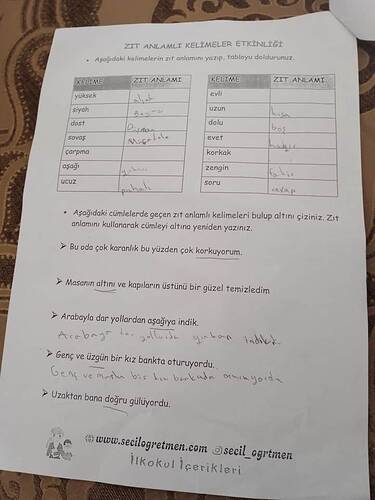 ZIT ANLAMLI KELİMELER ETKİNLİĞİ
• Aşağıdaki kelimelerin zıt anlamını yazıp, tabloyu doldurunuz.
KELİME ZIT ANLAMI
yüksek alçak
siyah
dost Düşman
savaş
çarpma
aşağı yukarı
ucuz pahalı
KELİME ZIT ANLAMI
evli
uzun kısa
dolu boş
evet hayır
korkak
zengin Fakir
soru cevap
• Aşağıdaki cümlelerde geçen zıt anlamlı kelimeleri bulup altını çiziniz. Zıt
anlamını kullanarak cümleyi altına yeniden yazınız.
➤ Bu oda çok karanlık bu yüzden çok korkuyorum.
➤ Masanın altını ve kapıların üstünü bir güzel temizledim
➤ Arabayla dar yollardan aşağıya indik.
dar yollarda yukarı indik
➤ Genç ve üzgün bir kız bankta oturuyordu.
Genç ve mutlu bir kız bankta
➤ Uzaktan bana doğru gülüyordu.
www.secilogretmen.com secil_ogrtmen
İlkokul İçerikleri